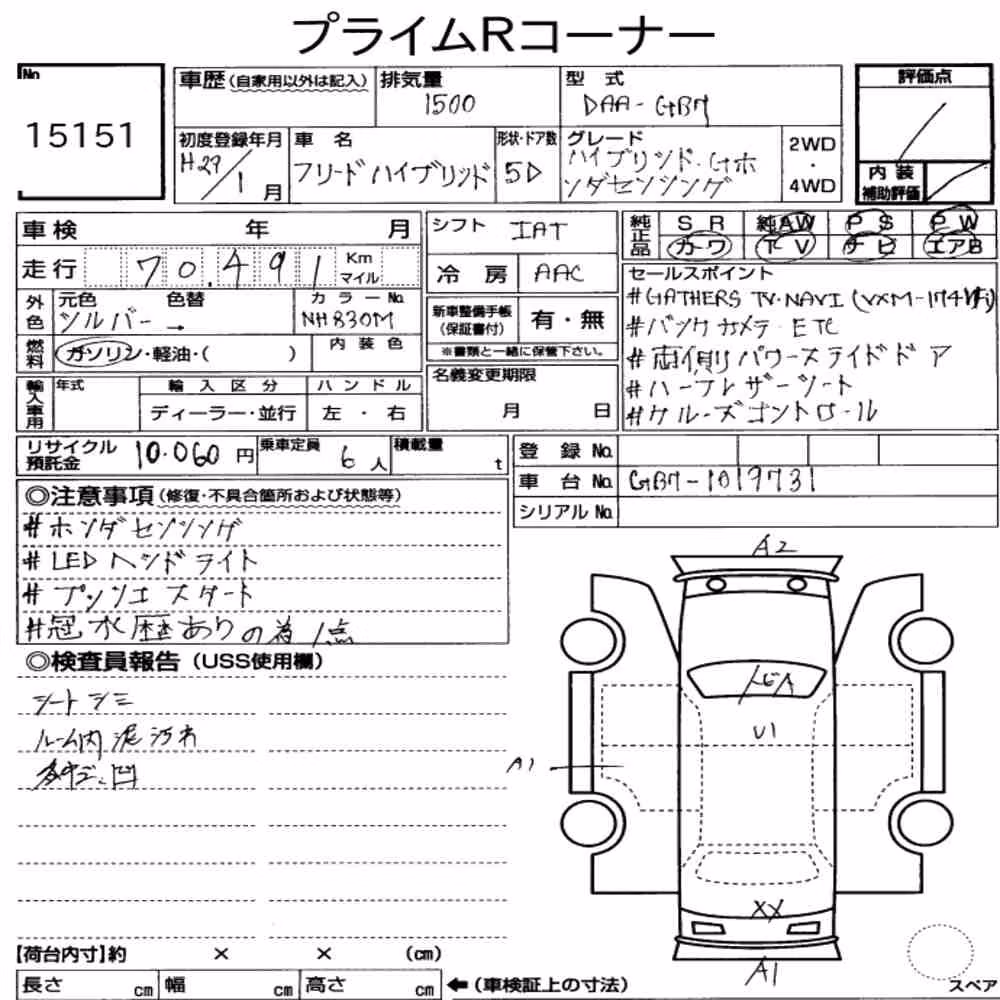 プライムRコーナー
No
15151
車歴 (自家用以外は記入)
排気量
1500
型式
DAA-GB7
評価点
初度登録年月
H29/1月
車名
フリードハイブリッド
形状・ドア数
5D
グレード
ハイブリッド・Gホ
ンダセンシング
2WD
・
4WD
内装
補助評価
車検 年 月
走行 70.491 Km マイル
シフト IAT
冷房 AAC
純正品
SR 純AW PS PW
カーワ TV ナビ エアB
外色
元色 色替
シルバー →
カラーNo.
NH830M
燃料
ガソリン・軽油・( )
内装色
新車整備手帳
(保証書付)
有・無
※書類と一緒に保管下さい。
セールスポイント
#GATHERS TV・NAVI (VXM-174
#バックカメラ・ETC
#両側パワースライドドア
#ハーフレザーシート
#クルーズコントロール
輸入車用
年式
輸入区分
ディーラー・並行
ハンドル
左・右
名義変更期限
月 日
リサイクル
預託金
10.060円
乗車定員
6人
積載量
t
登録No.
車台No. GB7-1019731
シリアルNo.
◎注意事項(修復・不具合箇所および状態等)
#ホンダセンシング
#LEDヘッドライト
#プッシュスタート
#冠水歴ありの為1点
◎検査員報告(USS使用欄)
シートシミ
ルーム内泥汚れ
凹
A2
U1
A1
XX
A1
【荷台内寸】約 × × (cm)
長さ cm 幅 cm 高さ cm ←(車検証上の寸法)
スペア